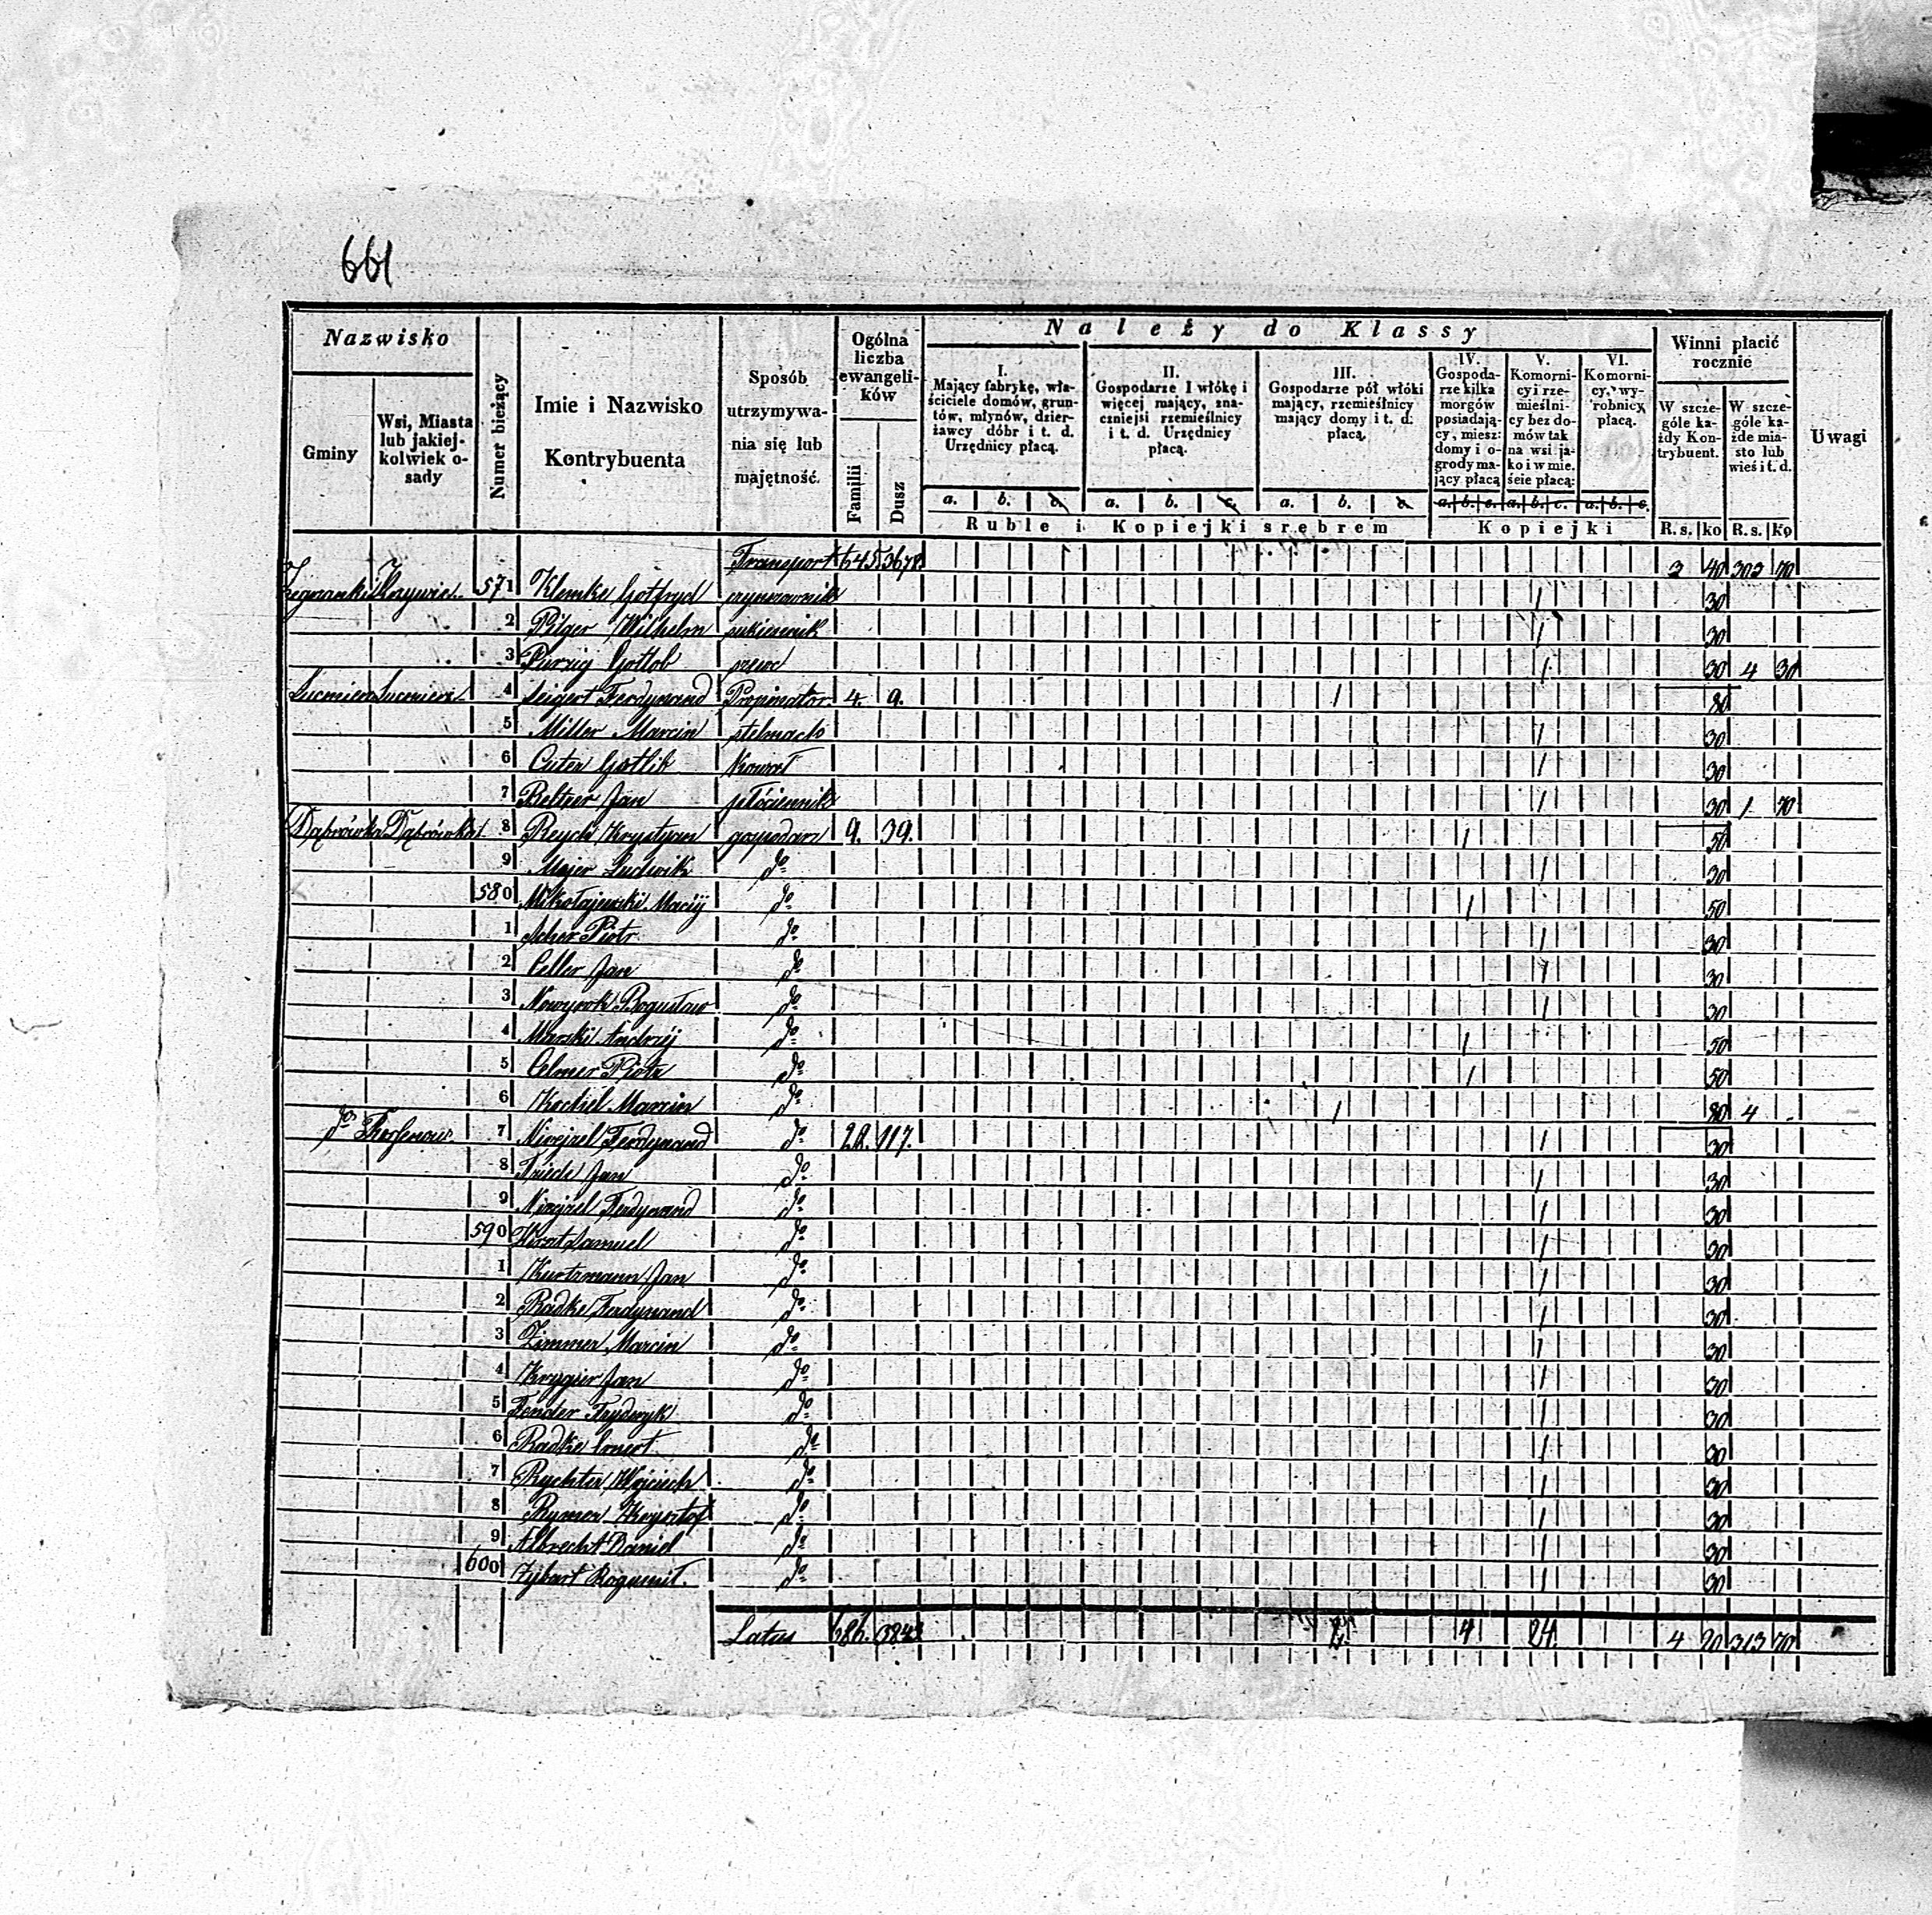 661
Nazwisko
Gminy
Wsi, Miasta lub jakiej-kolwiek o-sady
Numer bieżący
Imie i Nazwisko Kontrybuenta
Sposób utrzymywa-nia się lub majętność.
Ogólna liczba ewangeli-ków
Familii
Dusz
Należy do Klassy
I. Mający fabrykę, wła-ściciele domów, grun-tów, młynów, dzier-żawcy dóbr i t. d. Urzędnicy płacą.
II. Gospodarze 1 włókę i więcej mający, zna-czniejsi rzemieślnicy i t. d. Urzędnicy płacą.
III. Gospodarze pół włóki mający, rzemieślnicy mający domy i t. d. płacą.
IV. Gospoda-rze kilka morgów posiadają-cy, miesz: domy i o-grody ma-jący płacą
V. Komorni-cy i rze-mieślni-cy bez do-mów tak na wsi ja-ko i w mie.ście płacą:
VI. Komorni-cy, wy-robnicy, płacą.
a. b. c. a. b. c. a. b. c. a. b. c. a. b. c. a. b. c.
Ruble i Kopiejki srebrem
Kopiejki
Winni płacić rocznie
W szcze-góle ka-żdy Kon-trybuent.
W szcze-góle ka-żde mia-sto lub wieś i t. d.
R. s. ko R. s. Ko
Uwagi
Transport 645 3678 3 40 303 70
571 Klemke Gotfryd czynszownik 1 30
2 Pilger Wilhelm sukiennik 1 30
3 Purzig Gotlob szewc 1 30 4 30
Lućmierz Lućmierz 4 Seigert Ferdynand Propinator 4. 9. 1 80
5 Miller Marcin stelmach 1 30
6 Cuter Gotlib Kowal 1 30
7 Beltzer Jan płóciennik 1 30 1. 70
Dąbrówka Dąbrówka 8 Reych Krystyan gospodarz 9. 39. 1 50
9 Majer Ludwik do 1 30
580 Mikołajewski Maciy do 1 50
1 Scher Piotr do 1 30
2 Celler Jan do 1 30
3 Bogusław do 1 30
4 Murski Andrzej do 1 50
5 Celmer Piotr do 1 50
6 Marcin do 1 80 4 -
do 7 Ferdynand do 28. 117. 1 30
8 Jan do 1 30
9 Ferdynand do 1 30
590 Samuel do 1 30
1 Kurtzmann Jan do 1 30
2 Radke Ferdynand do 1 30
3 Zimmer Marcin do 1 30
4 Krygier Jan do 1 30
5 Fender Frydryk do 1 30
6 Radke Ernest do 1 30
7 Rychter Wojciech do 1 30
8 Rymer Krzysztof do 1 30
9 Albrecht Daniel do 1 30
600 Zybart Bogumił. do 1 30
Latus 686. 3843 2. 4 24. 4 20 313 70